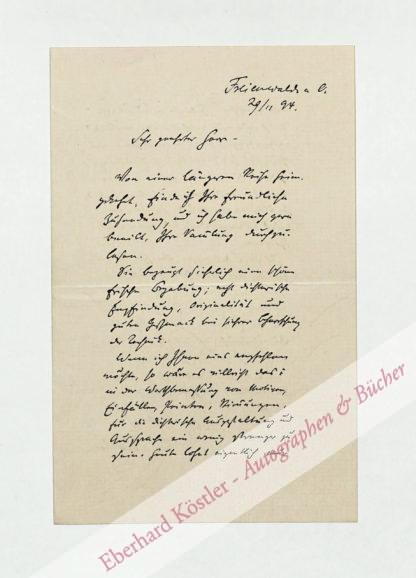 Freienwalde a. O.
29/11 94.
Sehr geehrter Herr –
Von einer längeren Reise heim-
gekehrt, finde ich Ihre freundliche
Zusendung, und ich habe mich gern
beeilt, Ihre Samlung durchzu-
lesen.
Sie bezeugt sicherlich eine schöne
frische Begabung; echt dichterische
Empfindung, Originalität und
guten Geschmack bei sicherer Beherrschung
der Technik.
Wenn ich Ihnen eins empfehlen
möchte, so wäre es vielleicht das:
in der Werthbemessung von Motiven,
Einfällen, Pointen, Wirkungen,
für die dichterische Ausgestaltung und
Aussprache ein wenig strenger zu
sein. Heute lohnt eigentlich
Eberhard Köstler - Autographen & Bücher